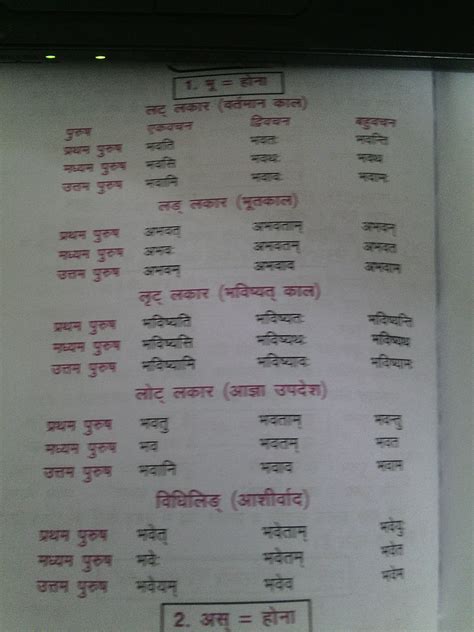 1. भू = होना
लट् लकार (वर्तमान काल)
पुरुष एकवचन द्विवचन बहुवचन
प्रथम पुरुष भवति भवतः भवन्ति
मध्यम पुरुष भवसि भवथः भवथ
उत्तम पुरुष भवामि भवावः भवामः
लङ् लकार (भूतकाल)
प्रथम पुरुष अभवत् अभवताम् अभवन्
मध्यम पुरुष अभवः अभवतम् अभवत
उत्तम पुरुष अभवम् अभवाव अभवाम
लृट् लकार (भविष्यत् काल)
प्रथम पुरुष भविष्यति भविष्यतः भविष्यन्ति
मध्यम पुरुष भविष्यसि भविष्यथः भविष्यथ
उत्तम पुरुष भविष्यामि भविष्यावः भविष्यामः
लोट् लकार (आज्ञा उपदेश)
प्रथम पुरुष भवतु भवताम् भवन्तु
मध्यम पुरुष भव भवतम् भवत
उत्तम पुरुष भवानि भवाव भवाम
विधिलिङ् (आशीर्वाद)
प्रथम पुरुष भवेत् भवेताम् भवेयुः
मध्यम पुरुष भवेः भवेतम् भवेत
उत्तम पुरुष भवेयम् भवेव भवेम
2. अस् = होना